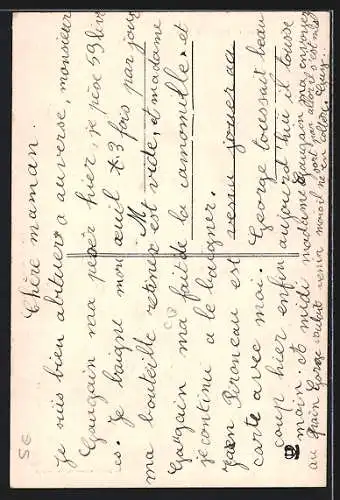 Chère maman.
Je suis bien abituer a auverse, monsieur
Gaugain ma peser hier, je pèse 59 livr
es. Je baigne mon œuil t. 3 fois par jour
ma bouteille est vide, et madame
Gaugain ma fait de la camomille et
je continu a le baigner.
Jean Bronceau est venu jouer au
carte avec moi. George toussait beau
coup hier enfin aujourd'hui il tousse
moin. et midi madame Gaugain ma envoyez
au grain George voulait venir
56